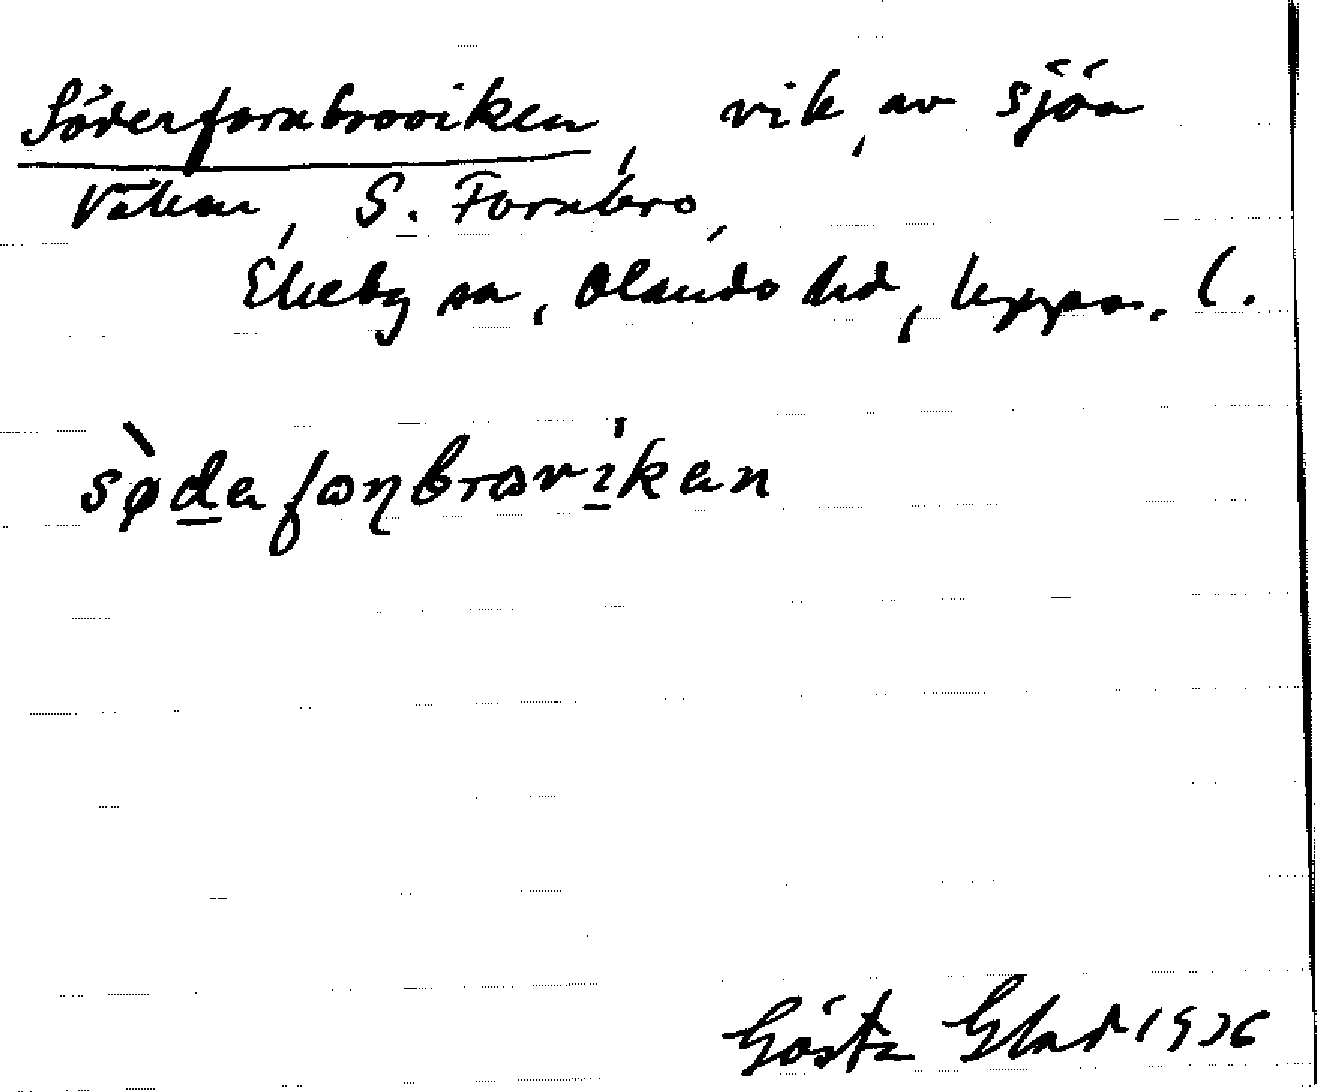 Söderfornbroviken, vik, av sjön
Väken, S. Fornbro,
Ekeby sn, Olands hd, Uppsa. l.
sø̀dafɷɳbrɷvikan
Gösta Glad 1926